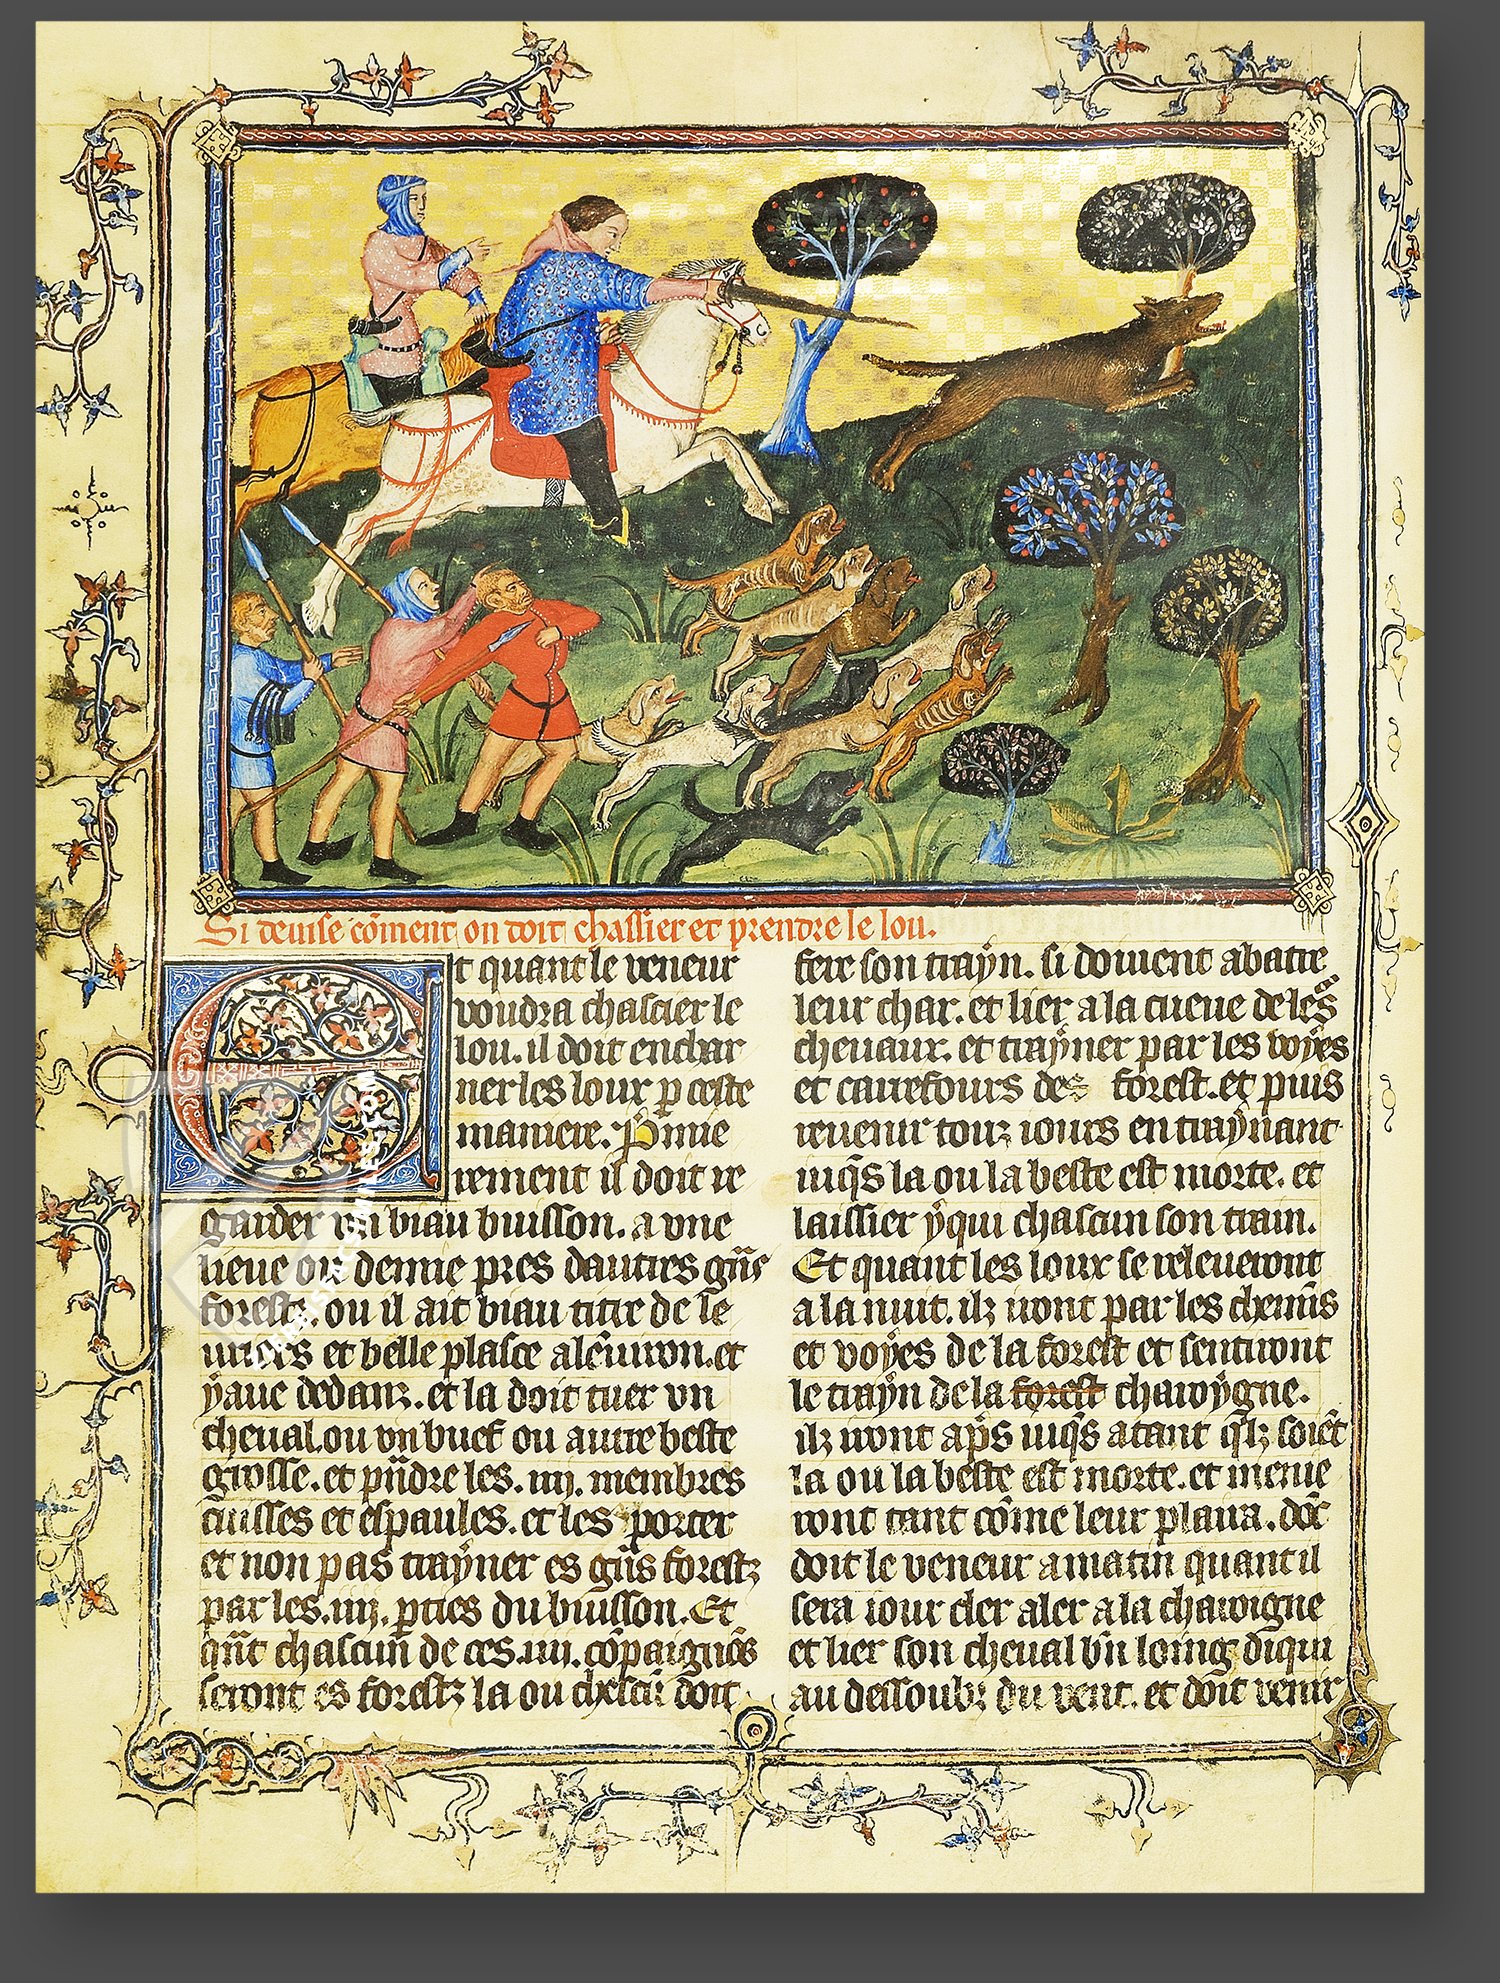 Si deuise cõment on doit chassier et prendre le lou.
Et quant le veneur
voudra chascier le
lou. il doit enchar
ner les loux p ceste
maniere. Pmie
rement il doit re
garder vn biau buisson. a vne
lieue ou demie pres dautres gñs
forestz. ou il ait biau titre de le
uriers et belle plasce alẽuiron. et
ẏaue dedanz. et la doit tuer vn
cheual. ou vn buef ou autre beste
grosse. et pñdre les .iiij. membres
cuisses et espaules. et les porter
et non pas traẏner es gñs forestz
par les .iiij. pties du buisson. Et
qñt chascun de ces .iiij. cõpaignõs
seront es forestz la ou chescũ doit
fere son traẏn. si doiuent abatre
leur char. et lier a la cueue de les
cheuaux. et traẏner par les voẏes
et carrefours des forest. et puis
reuenir touz iours en traẏnant
iuq̃s la ou la beste est morte. et
laissier ẏqui chascun son train.
Et quant les loux se releueront
a la nuit. ilz iront par les chemĩs
et voẏes de la forest et sentiront
le traẏn de la forest charoẏgne.
ilz iront ap̃s iuq̃s atant q̃lz soiẽt
la ou la beste est morte. et menie
ront tant cõme leur plaira. dõc
doit le veneur a matin quant il
sera iour cler aler a la charoigne
et lier son cheual bñ loing diqui
au dessoubz du vent. et doit venir